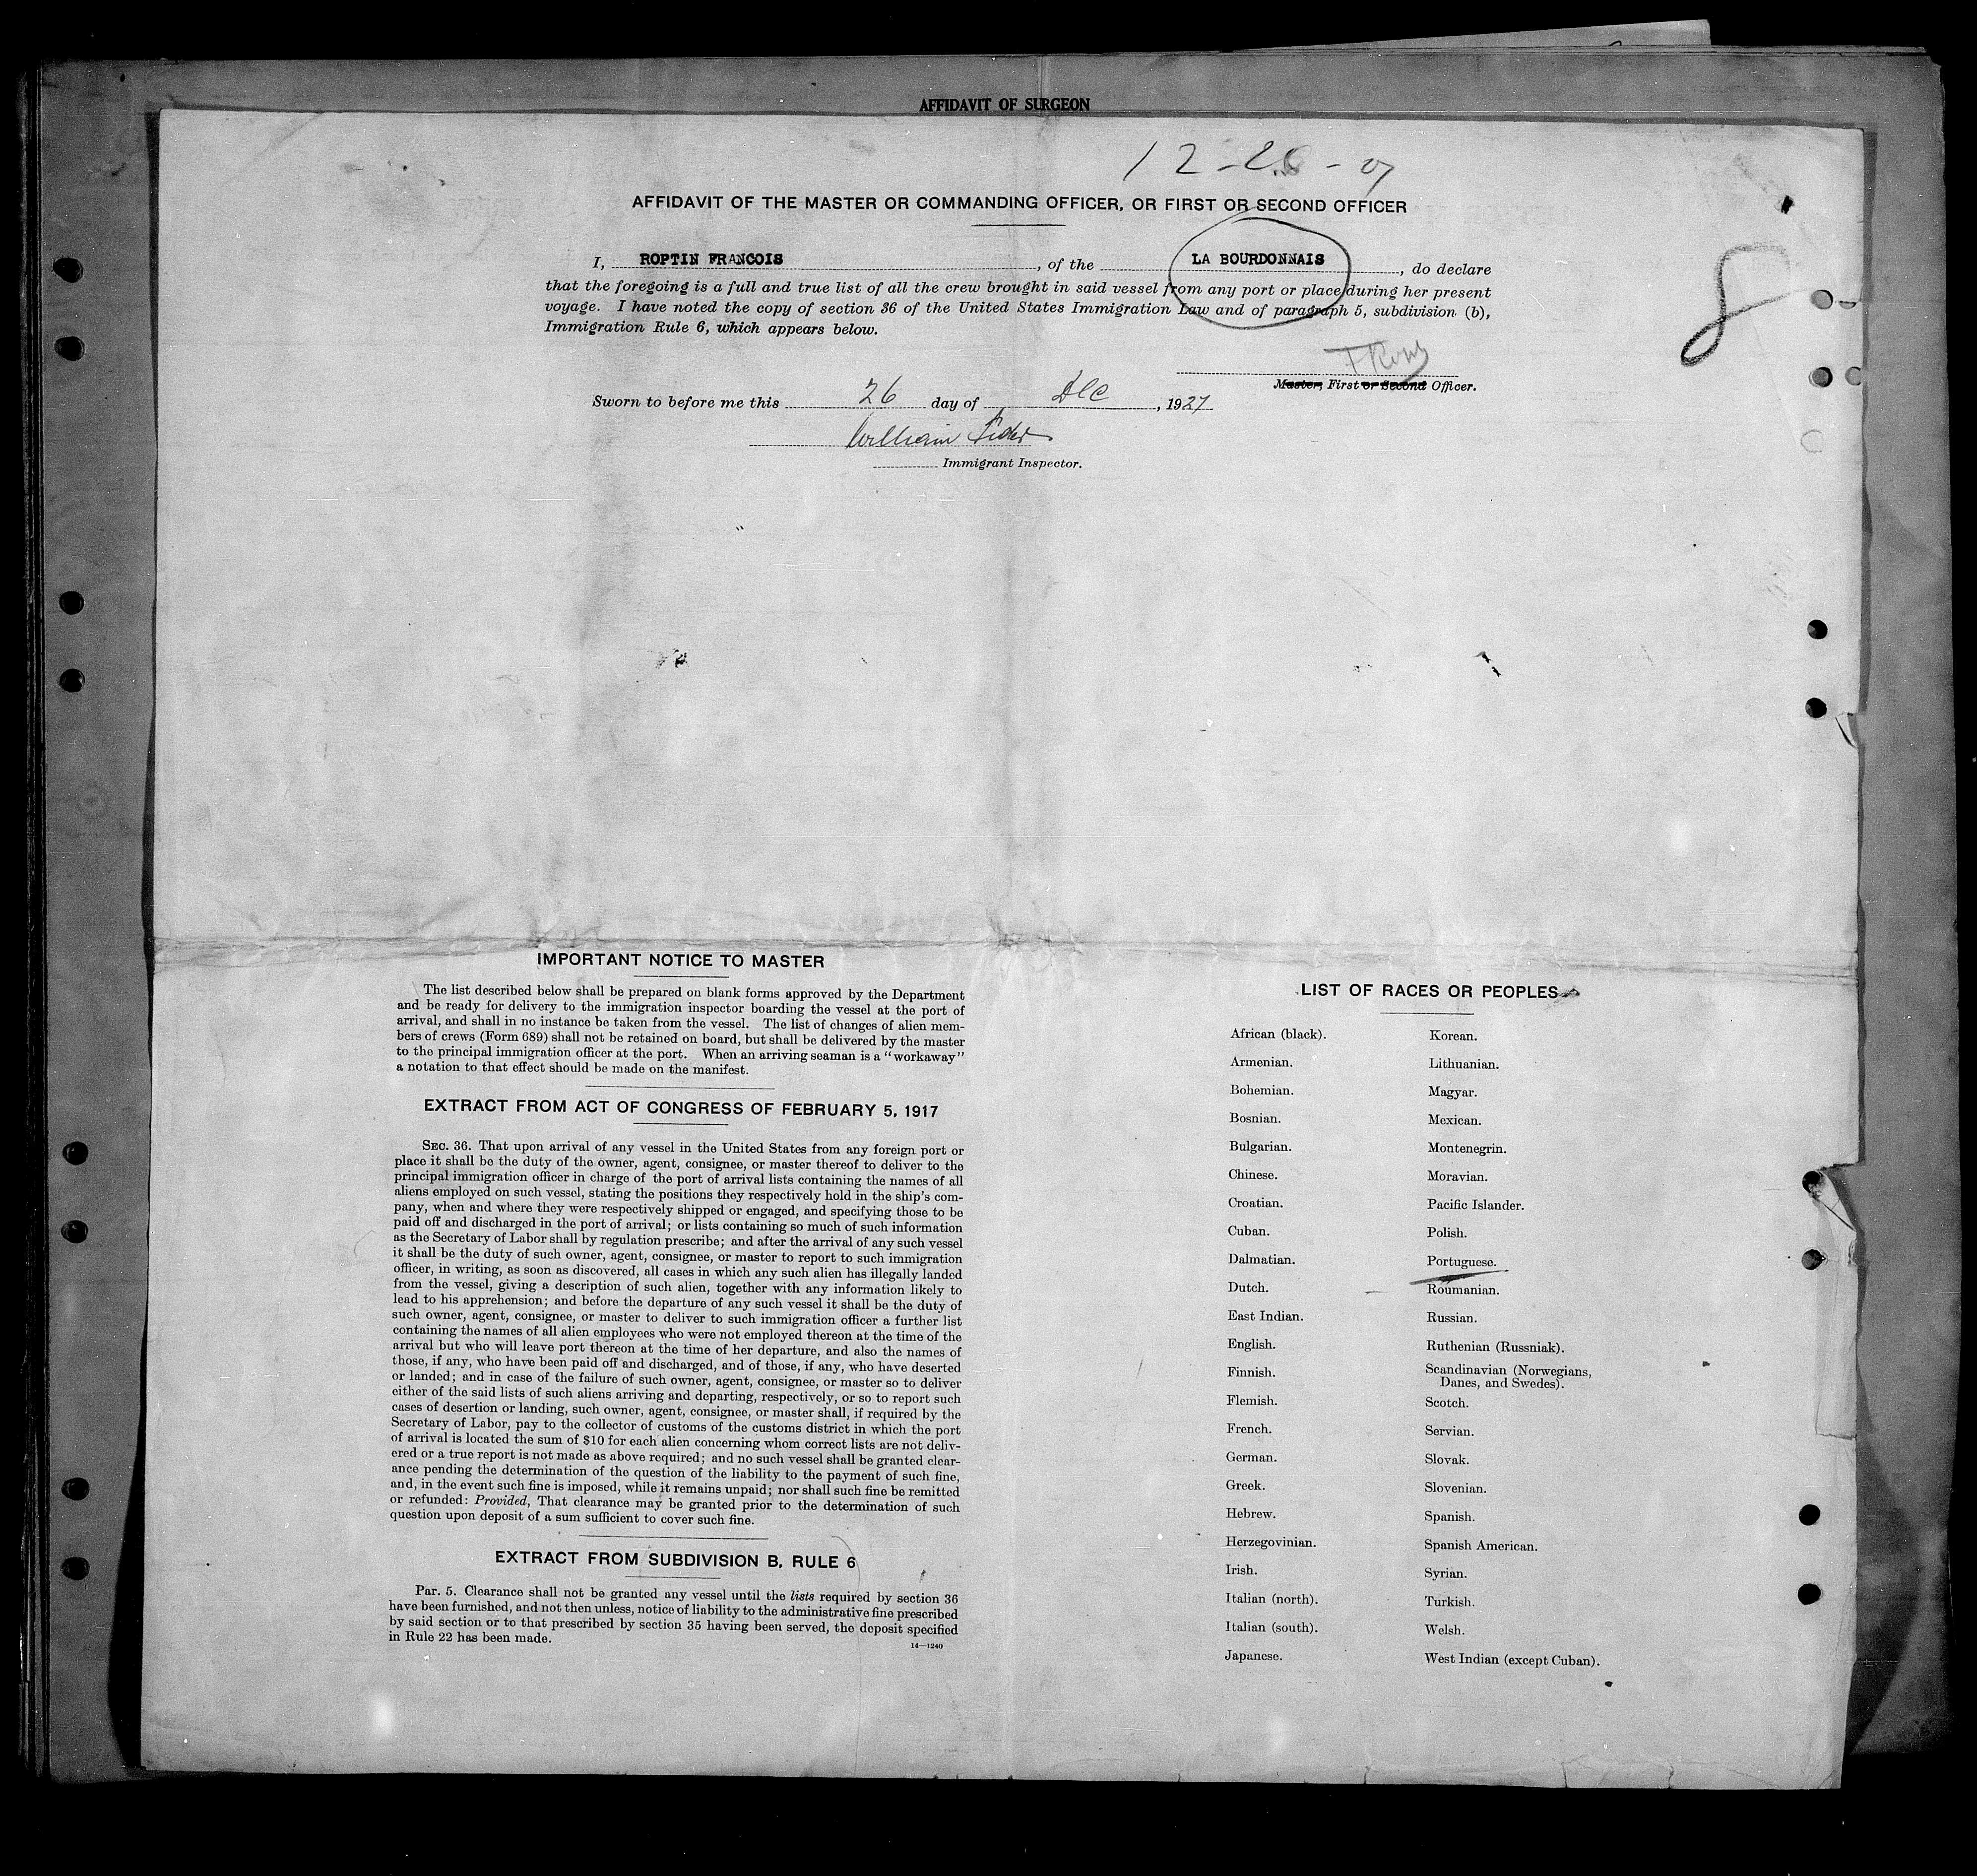 AFFIDAVIT OF SURGEON
AFFIDAVIT OF THE MASTER OR COMMANDING OFFICER, OR FIRST OR SECOND OFFICER
I, ROPTIN FRANCOIS, of the LA BOURDONNAIS, do declare
that the foregoing is a full and true list of all the crew brought in said vessel from any port or place during her present
voyage. I have noted the copy of section 36 of the United States Immigration Law and of paragraph 5, subdivision (b),
Immigration Rule 6, which appears below.
8
Master, First or Second Officer.
Sworn to before me this 26 day of Dec, 1927
William
Immigrant Inspector.
IMPORTANT NOTICE TO MASTER
The list described below shall be prepared on blank forms approved by the Department
and be ready for delivery to the immigration inspector boarding the vessel at the port of
arrival, and shall in no instance be taken from the vessel. The list of changes of alien mem-
bers of crews (Form 689) shall not be retained on board, but shall be delivered by the master
to the principal immigration officer at the port. When an arriving seaman is a "workaway"
a notation to that effect should be made on the manifest.
EXTRACT FROM ACT OF CONGRESS OF FEBRUARY 5, 1917
SEC. 36. That upon arrival of any vessel in the United States from any foreign port or
place it shall be the duty of the owner, agent, consignee, or master thereof to deliver to the
principal immigration officer in charge of the port of arrival lists containing the names of all
aliens employed on such vessel, stating the positions they respectively hold in the ship's com-
pany, when and where they were respectively shipped or engaged, and specifying those to be
paid off and discharged in the port of arrival; or lists containing so much of such information
as the Secretary of Labor shall by regulation prescribe; and after the arrival of any such vessel
it shall be the duty of such owner, agent, consignee, or master to report to such immigration
officer, in writing, as soon as discovered, all cases in which any such alien has illegally landed
from the vessel, giving a description of such alien, together with any information likely to
lead to his apprehension; and before the departure of any such vessel it shall be the duty of
such owner, agent, consignee, or master to deliver to such immigration officer a further list
containing the names of all alien employees who were not employed thereon at the time of the
arrival but who will leave port thereon at the time of her departure, and also the names of
those, if any, who have been paid off and discharged, and of those, if any, who have deserted
or landed; and in case of the failure of such owner, agent, consignee, or master so to deliver
either of the said lists of such aliens arriving and departing, respectively, or so to report such
cases of desertion or landing, such owner, agent, consignee, or master shall, if required by the
Secretary of Labor, pay to the collector of customs of the customs district in which the port
of arrival is located the sum of $10 for each alien concerning whom correct lists are not deliv-
ered or a true report is not made as above required; and no such vessel shall be granted clear-
ance pending the determination of the question of the liability to the payment of such fine,
and, in the event such fine is imposed, while it remains unpaid; nor shall such fine be remitted
or refunded: Provided, That clearance may be granted prior to the determination of such
question upon deposit of a sum sufficient to cover such fine.
EXTRACT FROM SUBDIVISION B, RULE 6
Par. 5. Clearance shall not be granted any vessel until the lists required by section 36
have been furnished, and not then unless, notice of liability to the administrative fine prescribed
by said section or to that prescribed by section 35 having been served, the deposit specified
in Rule 22 has been made.
14—1240
LIST OF RACES OR PEOPLES
African (black).
Armenian.
Bohemian.
Bosnian.
Bulgarian.
Chinese.
Croatian.
Cuban.
Dalmatian.
Dutch.
East Indian.
English.
Finnish.
Flemish.
French.
German.
Greek.
Hebrew.
Herzegovinian.
Irish.
Italian (north).
Italian (south).
Japanese.
Korean.
Lithuanian.
Magyar.
Mexican.
Montenegrin.
Moravian.
Pacific Islander.
Polish.
Portuguese.
Roumanian.
Russian.
Ruthenian (Russniak).
Scandinavian (Norwegians,
Danes, and Swedes).
Scotch.
Servian.
Slovak.
Slovenian.
Spanish.
Spanish American.
Syrian.
Turkish.
Welsh.
West Indian (except Cuban).